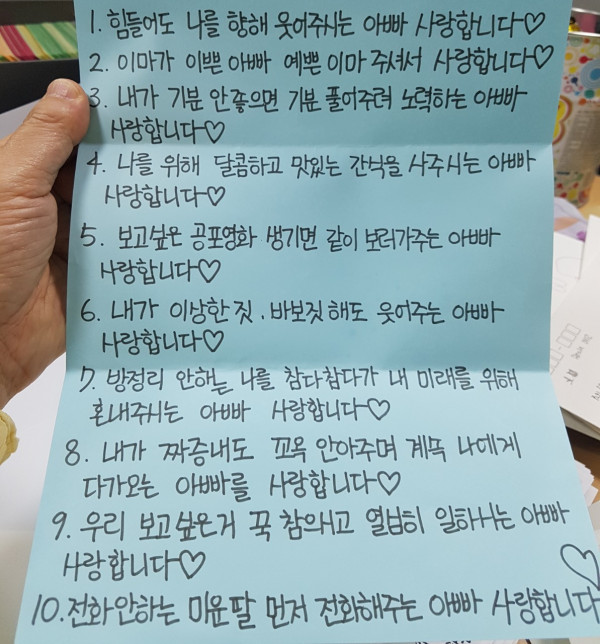 1. 힘들어도 나를 향해 웃어주시는 아빠 사랑합니다♡
2. 이마가 이쁜 아빠 예쁜 이마 주셔서 사랑합니다♡
3. 내가 기분 안좋으면 기분 풀어주려 노력하는 아빠
사랑합니다♡
4. 나를 위해 달콤하고 맛있는 간식을 사주시는 아빠
사랑합니다♡
5. 보고싶은 공포영화 생기면 같이 보러가주는 아빠
사랑합니다♡
6. 내가 이상한짓, 바보짓 해도 웃어주는 아빠
사랑합니다♡
7. 방정리 안해는 나를 참다참다가 내 미래를 위해
혼내주시는 아빠 사랑합니다♡
8. 내가 짜증내도 꼬옥 안아주며 계속 나에게
다가오는 아빠를 사랑합니다♡
9. 우리 보고싶은거 꾹 참으시고 열심히 일하시는 아빠
사랑합니다♡
10. 전화안하는 미운딸 먼저 전화해주는 아빠 사랑합니다♡